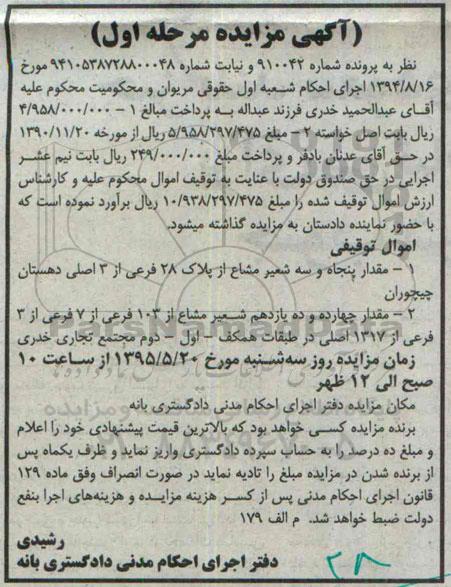 (آگهی مزایده مرحله اول)
نظر به پرونده شماره ۹۱۰۰۴۲ و نیابت شماره ۹۴۱۰۵۳۸۷۲۸۸۰۰۰۴۸ مورخ
۱۳۹۴/۸/۱۶ اجرای احکام شعبه اول حقوقی مریوان و محکومیت محکوم علیه
آقای عبدالحمید خدری فرزند عبداله به پرداخت مبالغ ۱ – ۴/۹۵۸/۰۰۰/۰۰۰
ریال بابت اصل خواسته ۲ – مبلغ ۵/۹۵۸/۲۹۷/۴۷۵ ریال از مورخه ۱۳۹۰/۱۱/۲۰
در حق آقای عدنان بادفر و پرداخت مبلغ ۲۴۹/۰۰۰/۰۰۰ ریال بابت نیم عشر
اجرایی در حق صندوق دولت با عنایت به توقیف اموال محکوم علیه و کارشناس
ارزش اموال توقیف شده را مبلغ ۱۰/۹۳۸/۲۹۷/۴۷۵ ریال برآورد نموده است که
با حضور نماینده دادستان به مزایده گذاشته میشود.
اموال توقیفی
۱ – مقدار پنجاه و سه شعیر مشاع از پلاک ۲۸ فرعی از ۳ اصلی دهستان
چیچوران
۲ – مقدار چهارده و ده یازدهم شعیر مشاع از ۱۰۳ فرعی از ۷ فرعی از ۳
فرعی از ۱۳۱۷ اصلی در طبقات همکف – اول – دوم مجتمع تجاری خدری
زمان مزایده روز سه‌شنبه مورخ ۱۳۹۵/۵/۲۰ از ساعت ۱۰
صبح الی ۱۲ ظهر
مکان مزایده دفتر اجرای احکام مدنی دادگستری بانه
برنده مزایده کسی خواهد بود که بالاترین قیمت پیشنهادی خود را اعلام
و مبلغ ده درصد را به حساب سپرده دادگستری واریز نماید و ظرف یکماه پس
از برنده شدن در مزایده مبلغ را تادیه نماید در صورت انصراف وفق ماده ۱۲۹
قانون اجرای احکام مدنی پس از کسر هزینه مزایده و هزینه‌های اجرا بنفع
دولت ضبط خواهد شد. م الف ۱۷۹
رشیدی
دفتر اجرای احکام مدنی دادگستری بانه
۲۸
ParsNamadData